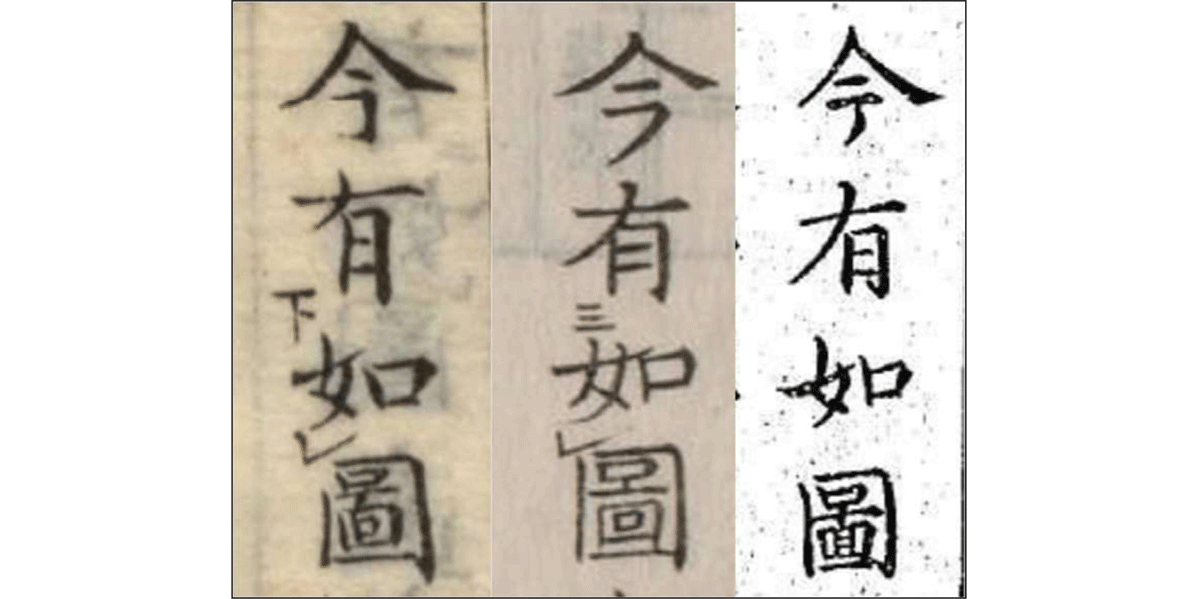 今有下如レ圖
今有三如レ圖
今有如圖